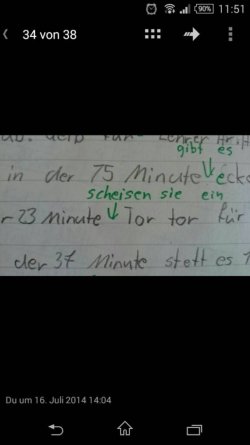 90% 11:51
34 von 38
gibt es
in der 75 Minute ecke
scheisen sie ein
r 23 Minute Tor tor für
der 37 Minute stett es 1
Du um 16. Juli 2014 14:04